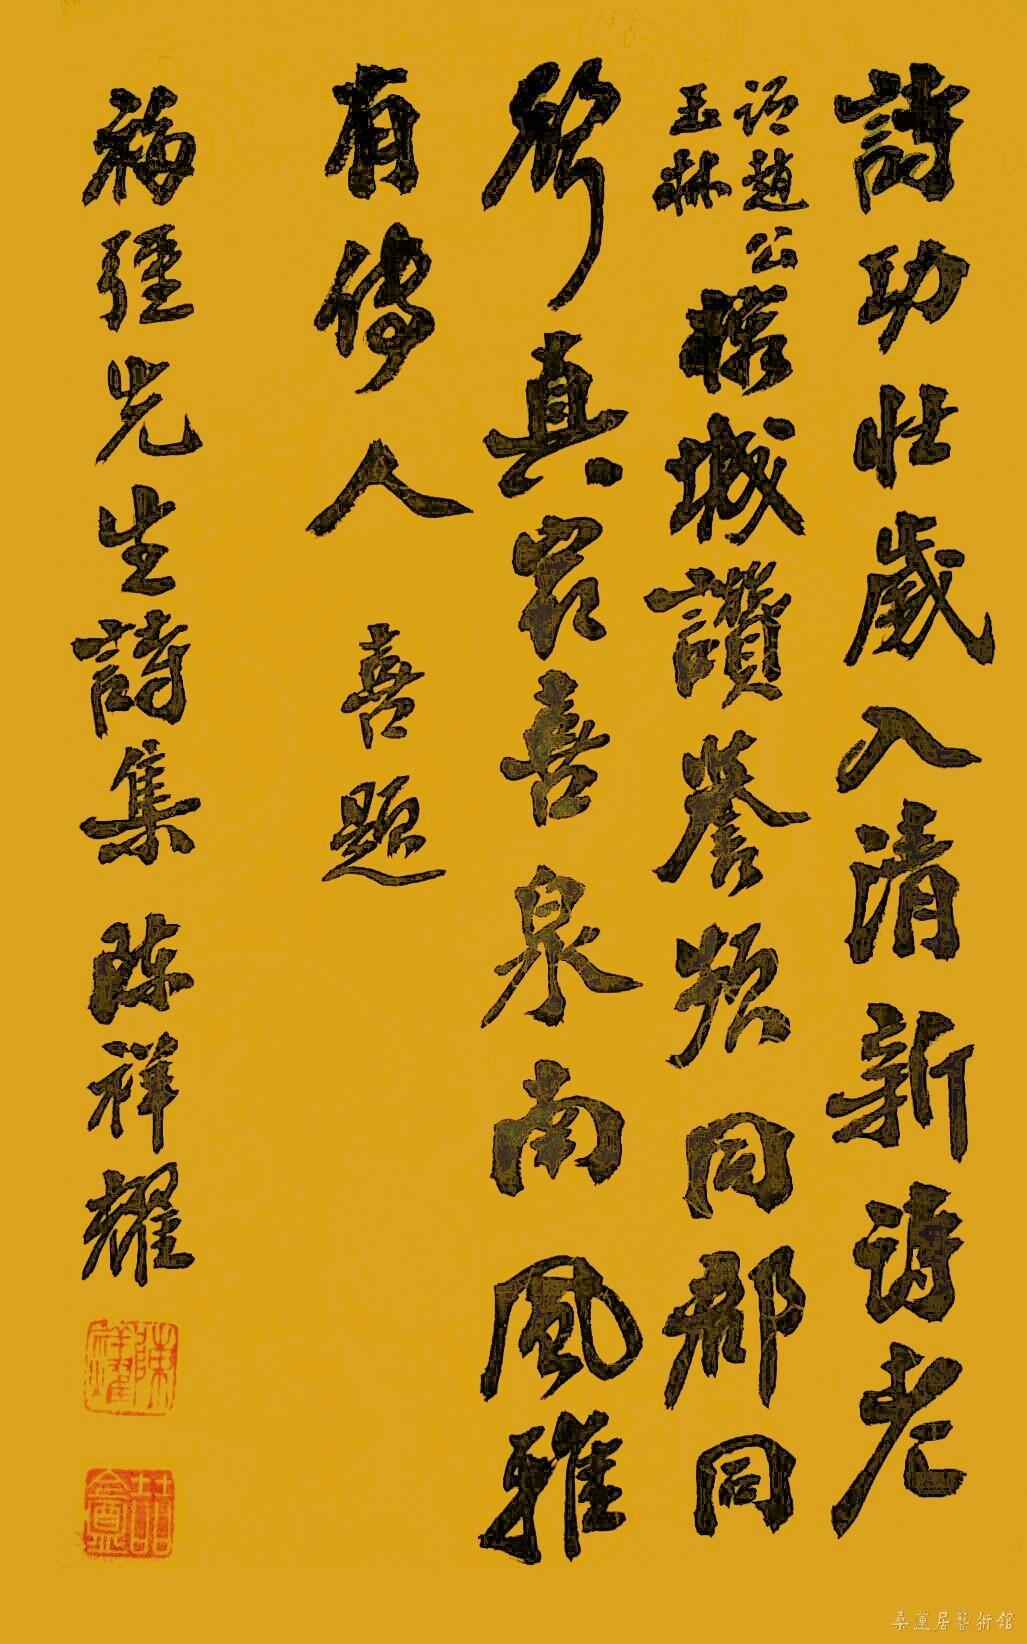 詩功壯歲入清新詩老
謂趙公玉林
榕城讚譽頻同郡同
聲真最喜泉南風雅
有傳人 喜題
先生詩集 陳祥耀
陳祥耀
喆盦
桑蓮居藝術館